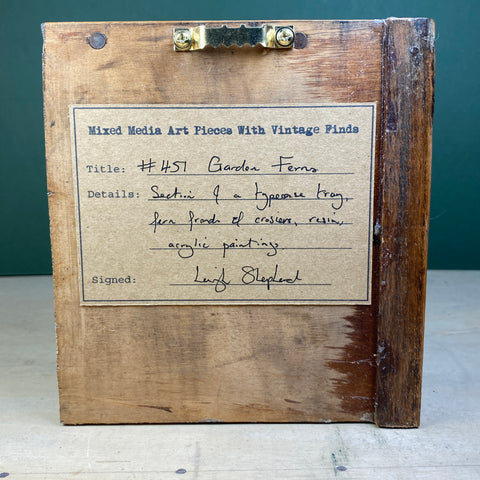 Mixed Media Art Pieces With Vintage Finds
Title: #451 Garden Ferns
Details: Section of a typecase tray,
fern fronds & crosiers, resin,
acrylic paintings.
Signed: Leigh Shepherd